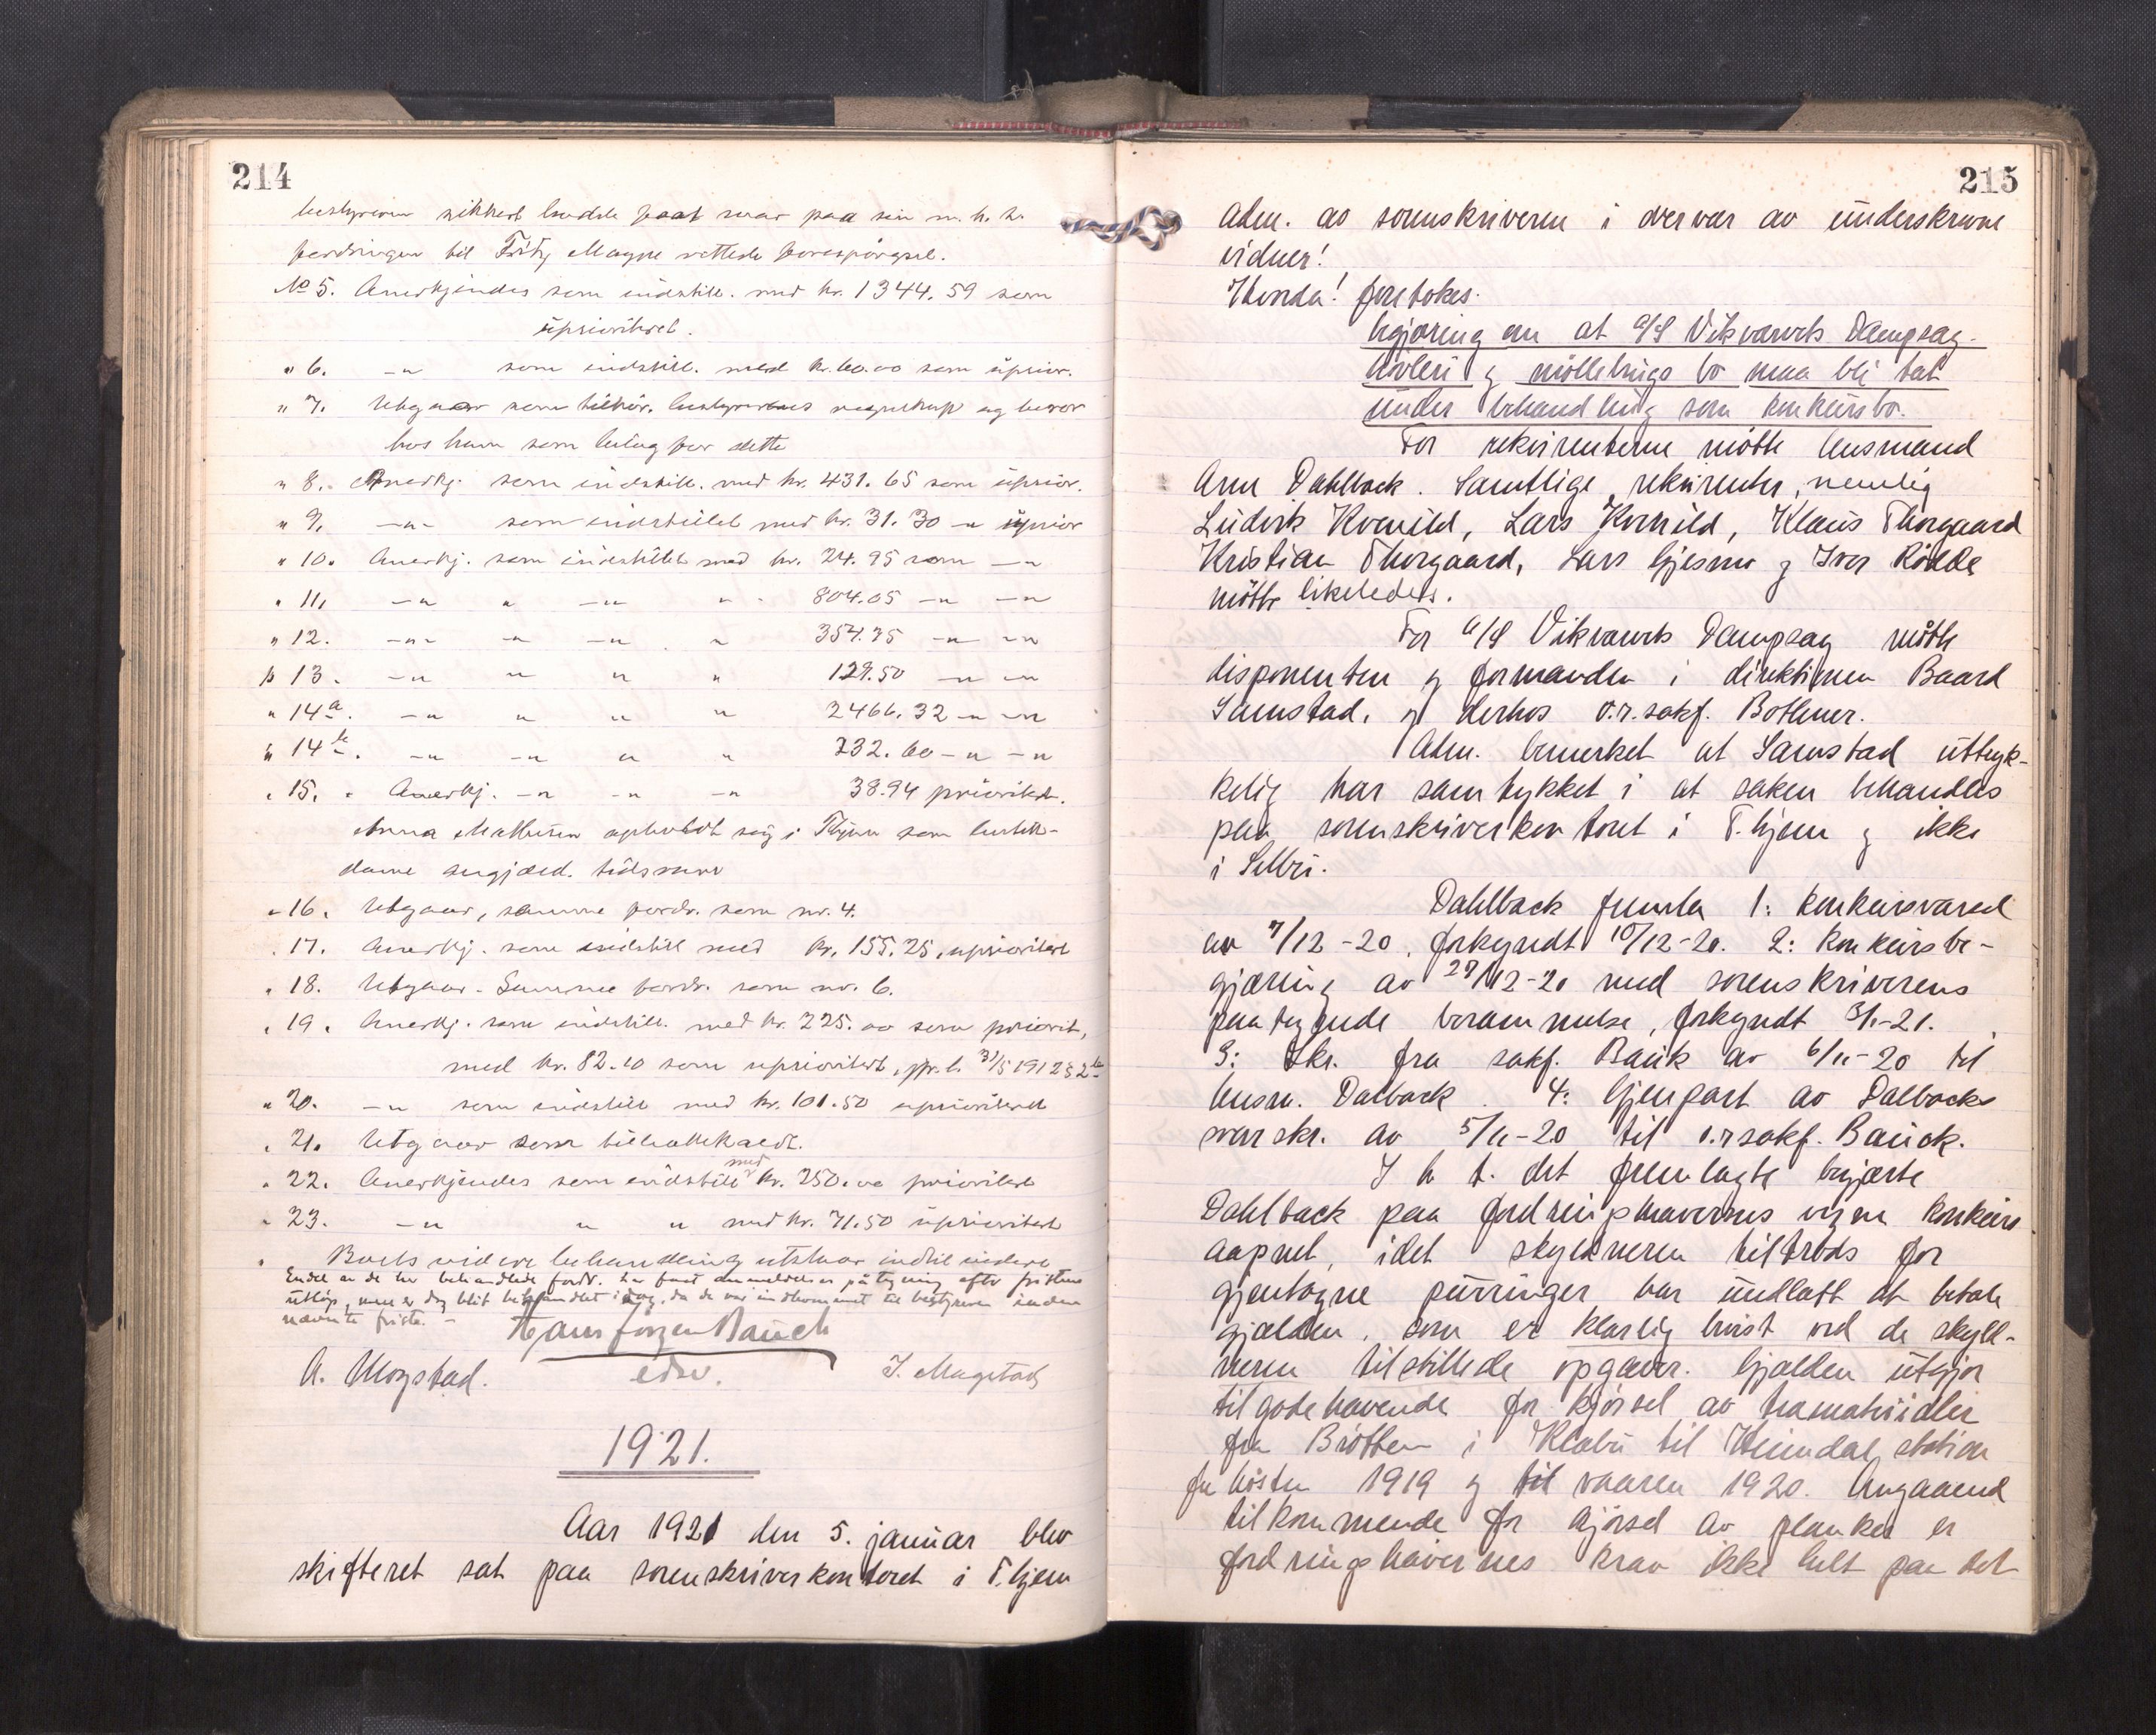 214
bestyreren sikkert hadde faat svar paa sin m. h. t.
fordringen til Fritz Magne rettede forespørgsel.
No 5. Anerkjendes som indstill. med kr. 1344.59 som
uprioritert.
" 6. -"- som indstill. med kr. 60.00 som uprior.
" 7. Utgaar som tilhør. bestyrerens regnskap og beror
hos ham som bilag for dette
" 8. Anerkj. som indstill. med kr. 431.65 som uprior.
" 9. -"- som indstillet med kr. 31.30 -" uprior
" 10. Anerkj. som indstillet med kr. 24.95 som -"
" 11, -" " -" " - 804.05 -" -"
" 12. -"- -" -" " 354.75 -" -"
" 13. -" " " " 129.50 -" -"
" 14a. -" " " " 2466.32 -" -"
" 14b. -" -" " " 232.60 -" -"
" 15. " Anerkj. -" -" -" 38.94 prioritert.
Anna Mathisen opholdt sig i Thjem som
dame angjæld. tidsrum
" 16. Utgaar, samme fordr. som nr. 4.
" 17. Anerkj. som indstill med kr. 155.25, uprioritert
" 18. Utgaar - Samme fordr. som nr. 6.
" 19. Anerkj. som indstill. med kr. 225.00 som priorit,
med kr. 82.10 som uprioritert, jfr. l. 31/5 1912 § 2
" 20. -" som indstill med kr. 101.50 uprioritert
" 21. Utgaar som tilbakekaldt.
" 22. Anerkjendes som indstill med kr. 250.00 prioritert
" 23. -" " " med kr. 71.50 uprioritert
Boets videre behandling utstaar indtil videre
Endel av de her behandlede fordr. har faat anmeldelses påtegning efter fristens
utløp, men er dog blit behandlet idag, da de var indkommet til bestyreren inden
nævnte frist. -
Hans Jørgen Bauck
A. Mogstad. edsv. J. Mogstad
1921.
Aar 1921 den 5. januar blev
skifteret sat paa sorenskriverkontoret i T.hjem
215
adm. av sorenskriveren i overvær av underskrevne
vidner!
Herda! foretokes.
begjæring om at A/S Vikvarvets Dampsag-
høvleri & møllebruks bo maa bli tat
under behandling som konkursbo.
For rekvirenterne møtte lensmand
Arne Dahlback. Samtlige rekvirenter, nemlig
Ludvik Kvenild, Lars Kvenild, Klaus Thorgaard
Kristian Thorgaard, Lars Gjesmo & Iver Rødde
møtte likeledes.
For A/S Vikvarvets Dampsag møtte
disponenten & formanden i direktionen Baard
Samstad, & derhos o.r.sakf. Bothner.
Adm. bemerket at Samstad uttryk-
kelig har samtykket i at saken behandles
paa sorenskriverkontoret i T.hjem & ikke
i Selbu.
Dahlback fremla 1: konkursvarsel
av 7/12-20, forkyndt 10/12-20. 2: konkursbe-
gjæring av 27/12-20 med sorenskriverens
paategnede berammelse, forkyndt 3/1-21.
3: Skr. fra sakf. Bauk av 6/11-20 til
lensm. Dalback. 4: Gjenpart av Dalbacks
svarskr. av 5/11-20 til o.r.sakf. Bauck.
I h. t. det fremlagte begjærte
Dahlback paa fordringshavernes vegne konkurs
aapnet, idet skyldneren tiltrods for
gjentagne purringer har undlatt at betale
gjælden, som er klarlig bevist ved de skyld-
neren tilstillede opgaver. Gjælden utgjør
tilgodehavende for kjørsel av træmaterialer
fra Brøttem i Klæbu til Heimdal station
fra høsten 1919 & til vaaren 1920. Angaaend
tilkommende for kjørsel av planker er
fordringshavernes krav ikke helt paa det